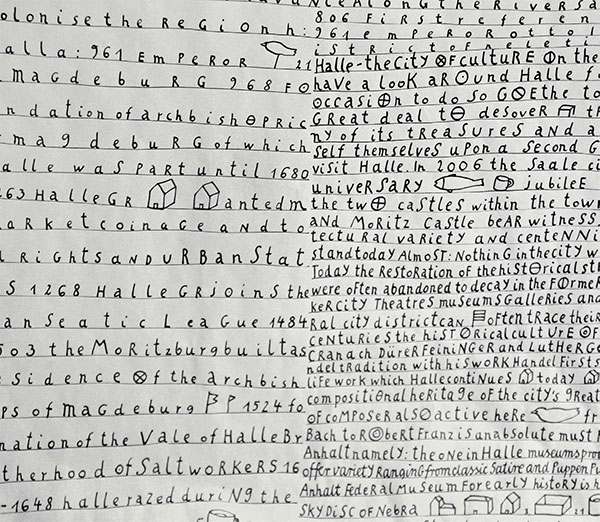 olonise the ReGion h:
alla: 961 EmPeROR 21
maGdebuRG 968 FO
ndation of archbishopRic
magdebuRG of which
alle waSPart until 1680
263 HalleGR antedm
aRKetcoinaGe aNd to
l RiGhtSaNDURBanStat
S 1268 HalleGRjoinS the
anSeatic LeaGue 1484
503 theMoRitzburgbuiltas
sidence Of the archbish
ps of magdeburg 1524 fo
nation of the Vale of HalleBr
therhood of SaltwoRKeRS 16
-1648 hallerazed duriNg the
ALonGtheRiveRSa
806 FiRSt referen
961 empeRoR otto I
iStRict of
Halle-the City OF cultuRE On the
have a looK aROund Halle f
occasiOn to do so GOE the to
GReat deal tO deSoveR th
ny of its tReaSuReS aNd a
Self themselveS upon a Second G
visit Halle. In 2006 the Saale ci
univeRSaRy jubileE
the twO caStleS within the tow
aNd MoRitz CaStle beAR witneSS
tectuRal vaRiety and centeNNi
standtoday AlmoSt: NothinG inthecity w
Today the RestoRation of thehistOrical st
were often abandoned to decay in the FORmeR
keRCity TheatreS muSeumSGalleRieS and
Ral city districtcaN oFteN tRace theiR
ceNtuRieS the hiSTORicalcultURE OF
CRanach DüReRFeiniNGeR and LutHeRGe
ndel tRadition with hiSwoRKHandelFiRStS
liFe woRK which HallecontiNueS today
compositional heRitaGe of the city's GReat
OF comPoSeRalSOactive heRe fr
Bach to RObeRt FRanz iSanabSolute muSt
Anhaltnamely: theoneinHalle museumspro
offervarietyRanGinGfromclaSSic Satire and PuppenPu
Anhalt FedeRal MuSeum FoR eaRly hiStoRy iS h
SKy DiSC oF NebRa